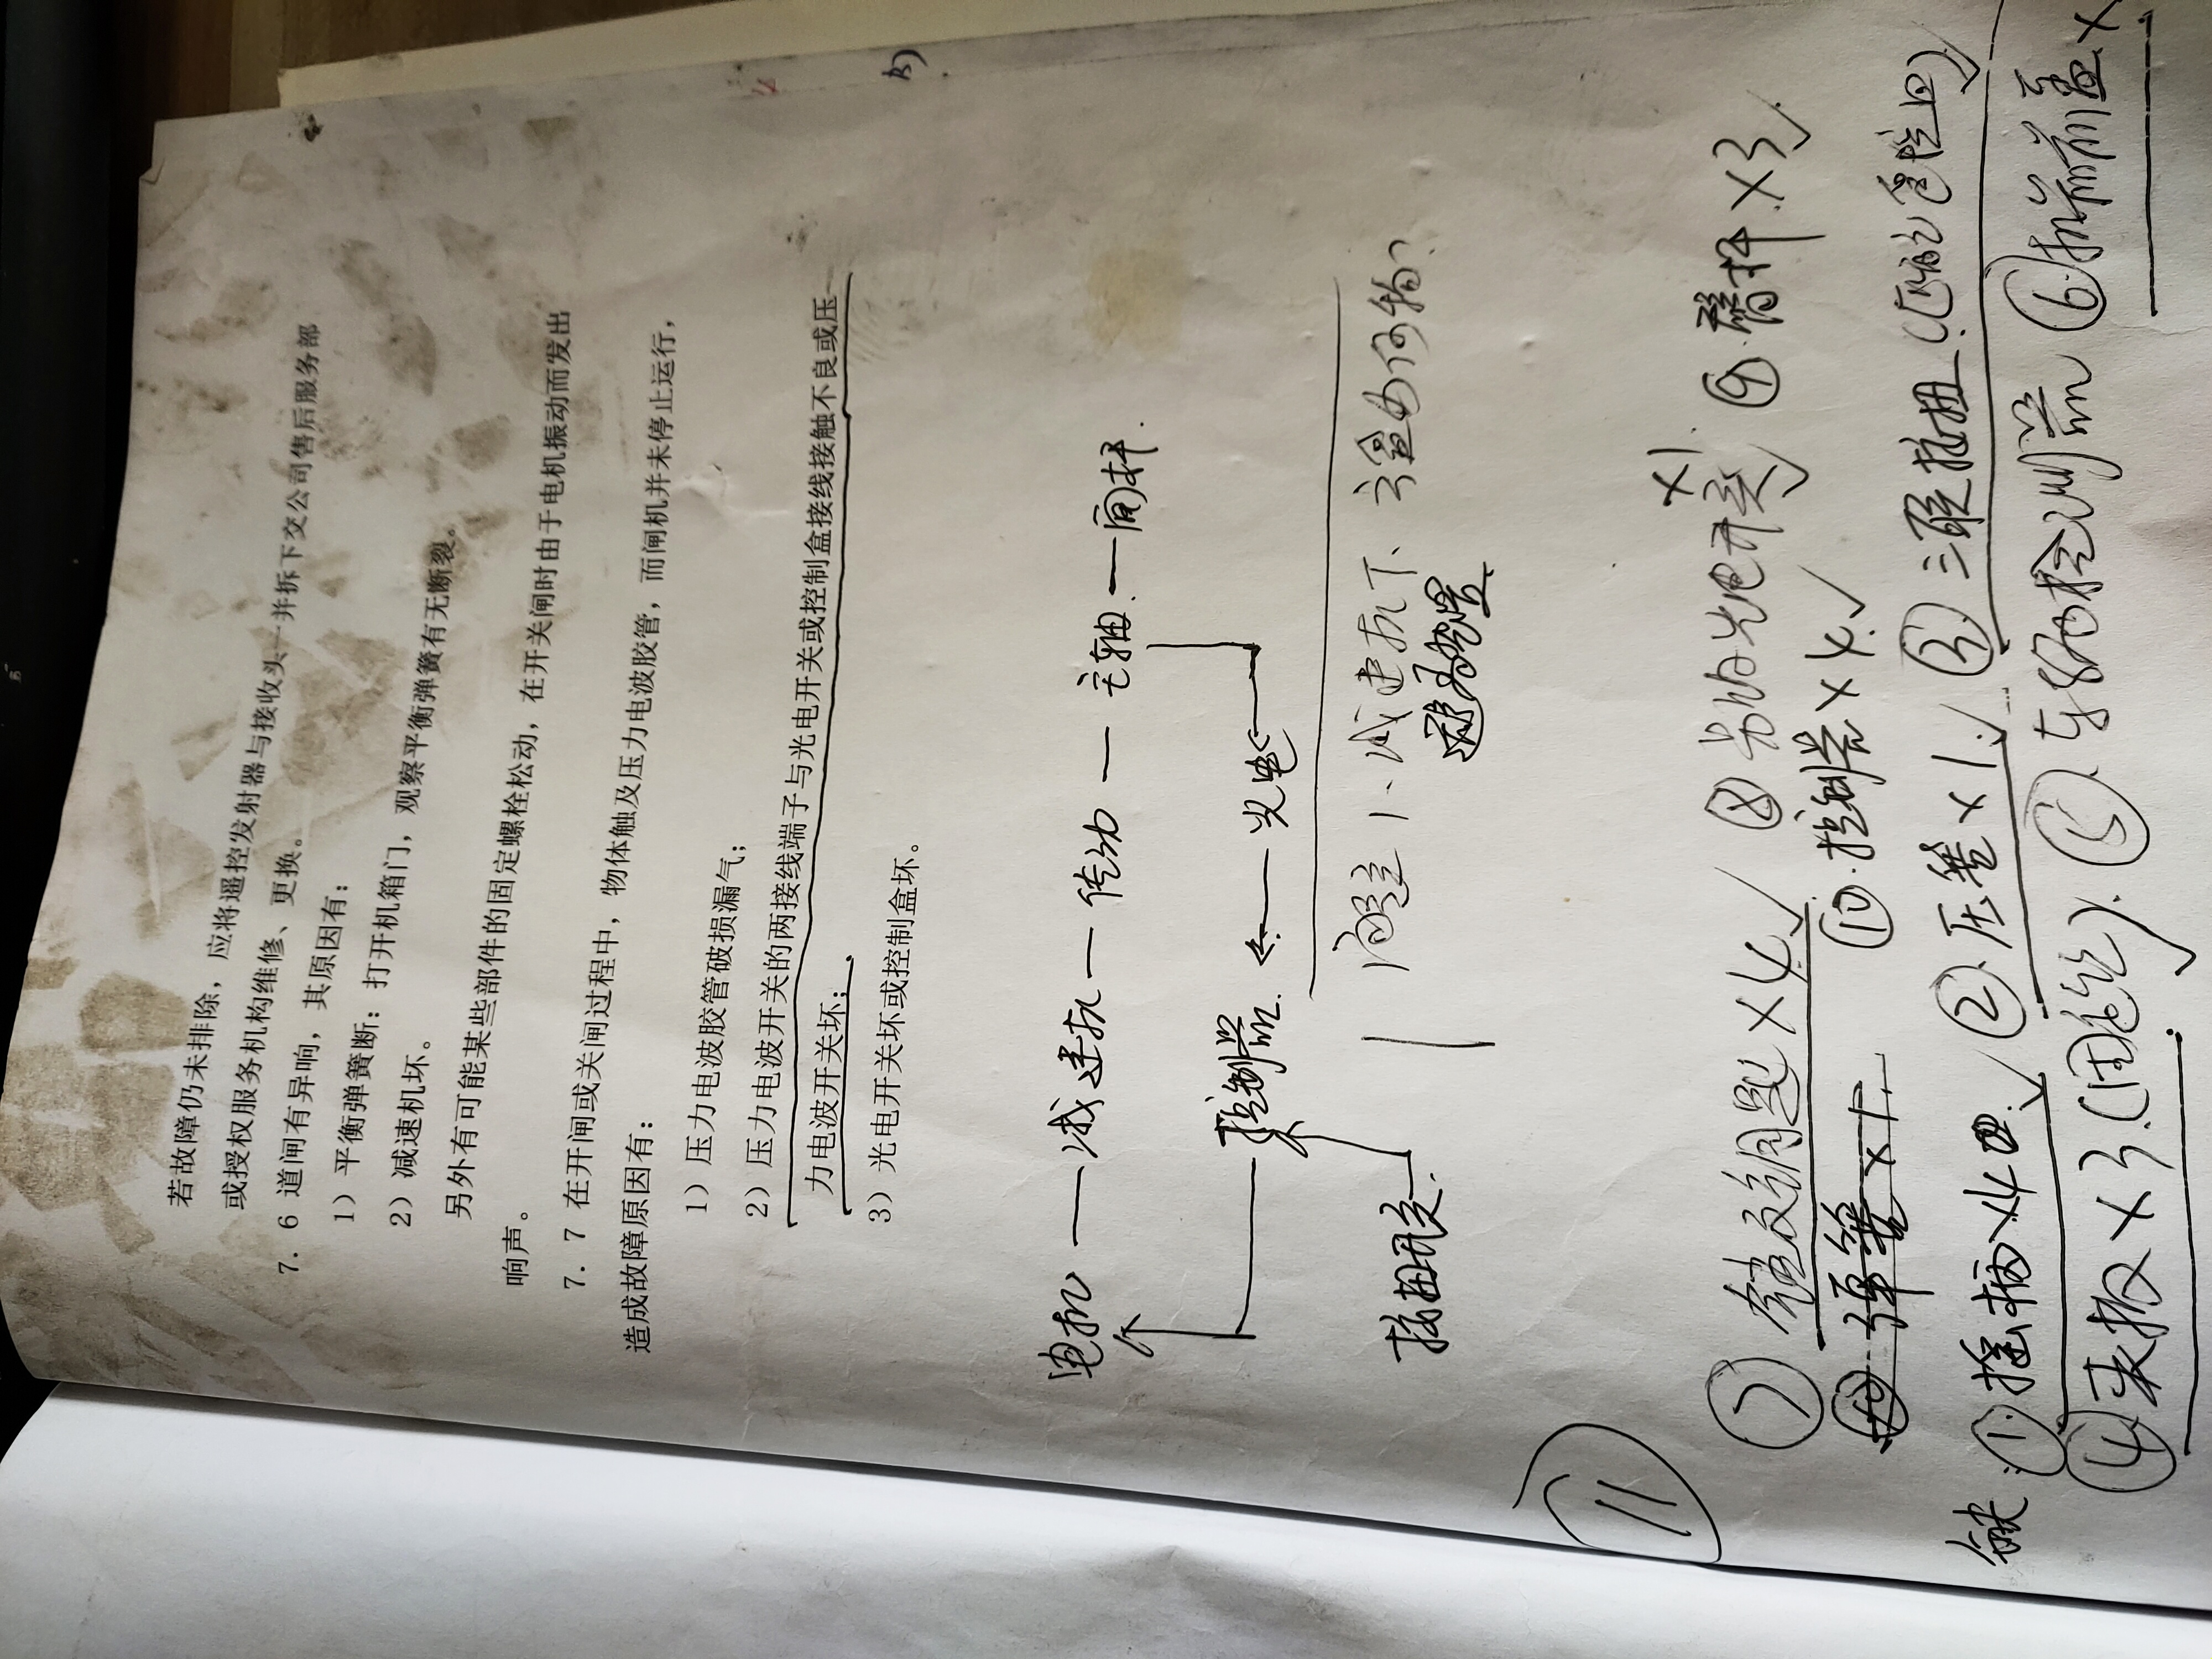 若故障仍未排除，应将遥控发射器与接收头一并拆下交公司售后服务部
或授权服务机构维修、更换。
7. 6 道闸有异响，其原因有：
1）平衡弹簧断：打开机箱门，观察平衡弹簧有无断裂。
2）减速机坏。
另外有可能某些部件的固定螺栓松动，在开关闸时由于电机振动而发出
响声。
7. 7 在开闸或关闸过程中，物体触及压力电波胶管，而闸机并未停止运行，
造成故障原因有：
1）压力电波胶管破损漏气；
2）压力电波开关的两接线端子与光电开关或控制盒接线接触不良或压
力电波开关坏；
3）光电开关坏或控制盒坏。
电机 — 减速机 — 传动 — 主轴 — 闸杆.
控制器. ← 光电 ←
按扭开关.
问题 1、减速机下、方盒为何物？
11
⑦ ×4 ⑧ 光电开关 ×1. ⑨ 臂杆 ×3
弹簧 ×1 ⑩.控制器 ×4.
缺. ①.摇柄 ×4 ②.压簧 ×1. ③ 三联按扭.
④ 夹板 ×3. ⑤. 车辆检测器 ⑥.